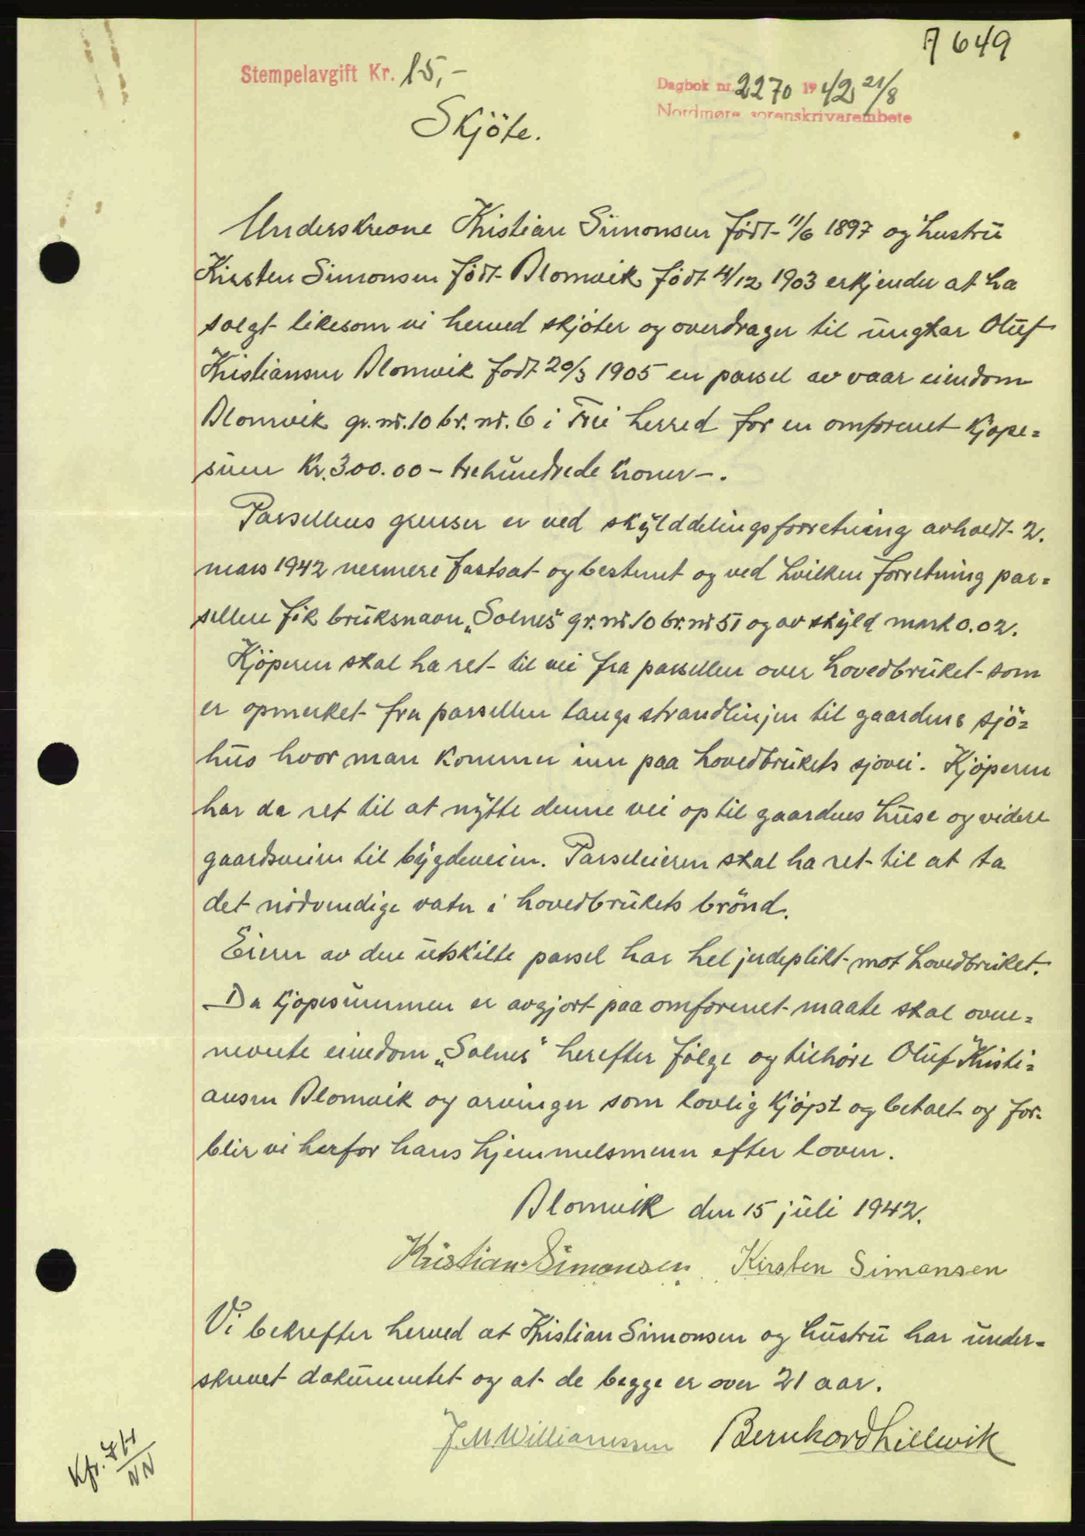 A 649
Stempelavgift Kr. 15,-
Dagbok nr. 2270 1942 21/8
Nordmøre sorenskrivarembete
Skjöte.
Underskrevne Kristian Simonsen født 11/6 1897 og hustru
Kirsten Simonsen født Blomvik født 4/12 1903 erkjender at ha
solgt likesom vi herved skjöter og overdrager til ungkar Oluf
Kristiansen Blomvik født 20/3 1905 en parsel av vaar eiendom
Blomvik gr. nr. 10 br. nr. 6 i Frei herred for en omforenet kjøpe=
sum Kr. 300.00 – trehundrede kroner –.
Parsellens grenser er ved skylddelingsforretning avholdt 2.
mars 1942 nermere fastsat og bestemt og ved hvilken forretning par=
sellen fik bruksnavn „Solnes" gr. nr 10 br. nr 51 og av skyld mark 0.02.
Kjöperen skal ha ret til vei fra parsellen over hovedbruket som
er opmerket fra parsellen langs strandlinjen til gaardens sjö=
hus hvor man kommer inn paa hovedbrukets sjøvei. Kjöperen
har da ret til at nytte denne vei op til gaardens huse og videre
gaardsveien til bygdeveien. Parseleieren skal ha ret til at ta
det nödvendige vatn i hovedbrukets brönd.
Eieren av den utskilte parsel har hel gjerdeplikt mot hovedbruket.
Da kjøpesummen er avgjort paa omforenet maate skal oven=
nevnte eiendom „Solnes" herefter følge og tilhøre Oluf Kristi=
ansen Blomvik og arvinger som lovlig kjøpt og betalt og for=
blir vi herfor hans hjemmelsmenn efter loven.
Blomvik den 15 juli 1942.
Kristian Simonsen Kirsten Simonsen
Vi bekrefter herved at Kristian Simonsen og hustru har under=
skrevet dokumentet og at de begge er over 21 aar.
J. M Williamssen Bernhard Lillevik
Kfr. 7H
NN